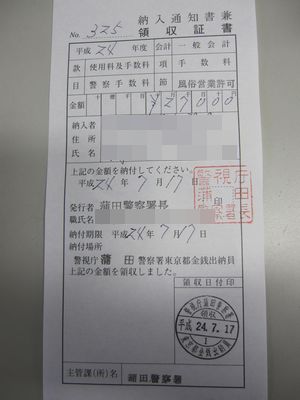 納入通知書兼
No. 325 領収証書
平成 24 年度 会計 一般会計
款 使用料及手数料 項 手数料
目 警察手数料 節 風俗営業許可
金額 ¥27000
納入者
住所
氏名
上記の金額を納付してください。
平成24年7月17日
警視庁
蒲田
警察署長
印
発行者 蒲田警察署長
職氏名
納付期限 平成24年7月17日
納付場所
警視庁 蒲田 警察署東京都金銭出納員
上記の金額を領収しました。
領収日付印
領収
平成 24.7.17
1
東京都金銭出納員
主管課(所)名 蒲田警察署